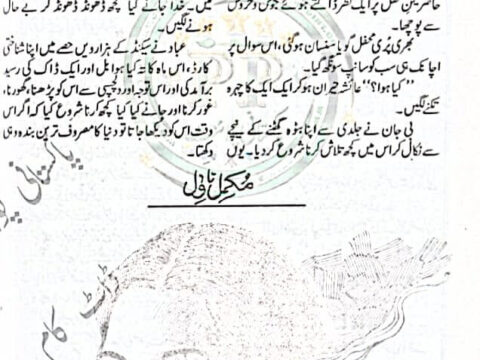 حاضرین محفل پر ایک نظر ڈالتے ہوئے جوش و خروش
سے پوچھا۔
بھری پُری محفل گویا سنسان ہو گئی، اس سوال پر
اچانک ہی سب کو سانپ سونگھ گیا۔
”کیا ہوا؟“ عائشہ حیران ہو کر ایک ایک کا چہرہ
تکنے لگیں۔
بی جان نے جلدی سے اپنا بٹوہ گھٹنے کے نیچے
سے نکال کر اس میں کچھ تلاش کرنا شروع کر دیا۔ یوں
میں۔ خدا جانے کیا کچھ ڈھونڈ ڈھونڈ کر بے حال
ہونے لگیں۔
عباد نے سیکنڈ کے ہزارویں حصے میں اپنا شناختی
کارڈ، اس ماہ کا تہ کیا ہوا بل اور ایک ڈاک کی رسید
برآمد کی اور اس توجہ اور دلچسپی سے اس کو پڑھنا، گھورنا،
غور کرنا اور جانے کیا کیا کچھ کرنا شروع کیا کہ اگر اس
وقت اس کو دیکھا جاتا تو دنیا کا مصروف ترین بندہ وہی
دکھتا۔
مکمل ناول
پاکستانی
ڈاٹ کام